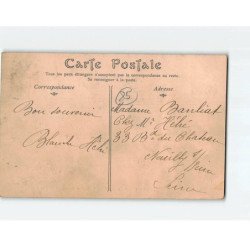 Carte Postale
Tous les pays étrangers n'acceptent pas la correspondance au recto.
Se renseigner à la poste.
Correspondance
Adresse
25
Bon souvenir
Blanche
Madame
Chez Mr
33 Bd du Chateau
Neuilly s/ Seine
Seine